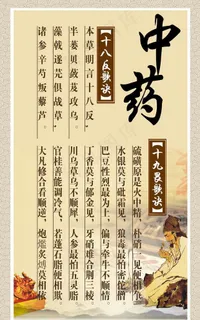 中药
【十八反歌诀】
本草明言十八反，
半蒌贝蔹芨攻乌。
藻戟遂芫俱战草，
诸参辛芍叛藜芦。
【十九畏歌诀】
硫磺原是火中精，朴硝一见便相争。
水银莫与砒霜见，狼毒最怕密陀僧。
巴豆性烈最为上，偏与牵牛不顺情。
丁香莫与郁金见，牙硝难合荆三棱。
川乌草乌不顺犀，人参最怕五灵脂。
官桂善能调冷气，若逢石脂便相欺。
大凡修合看顺逆，炮爁炙煿莫相依。